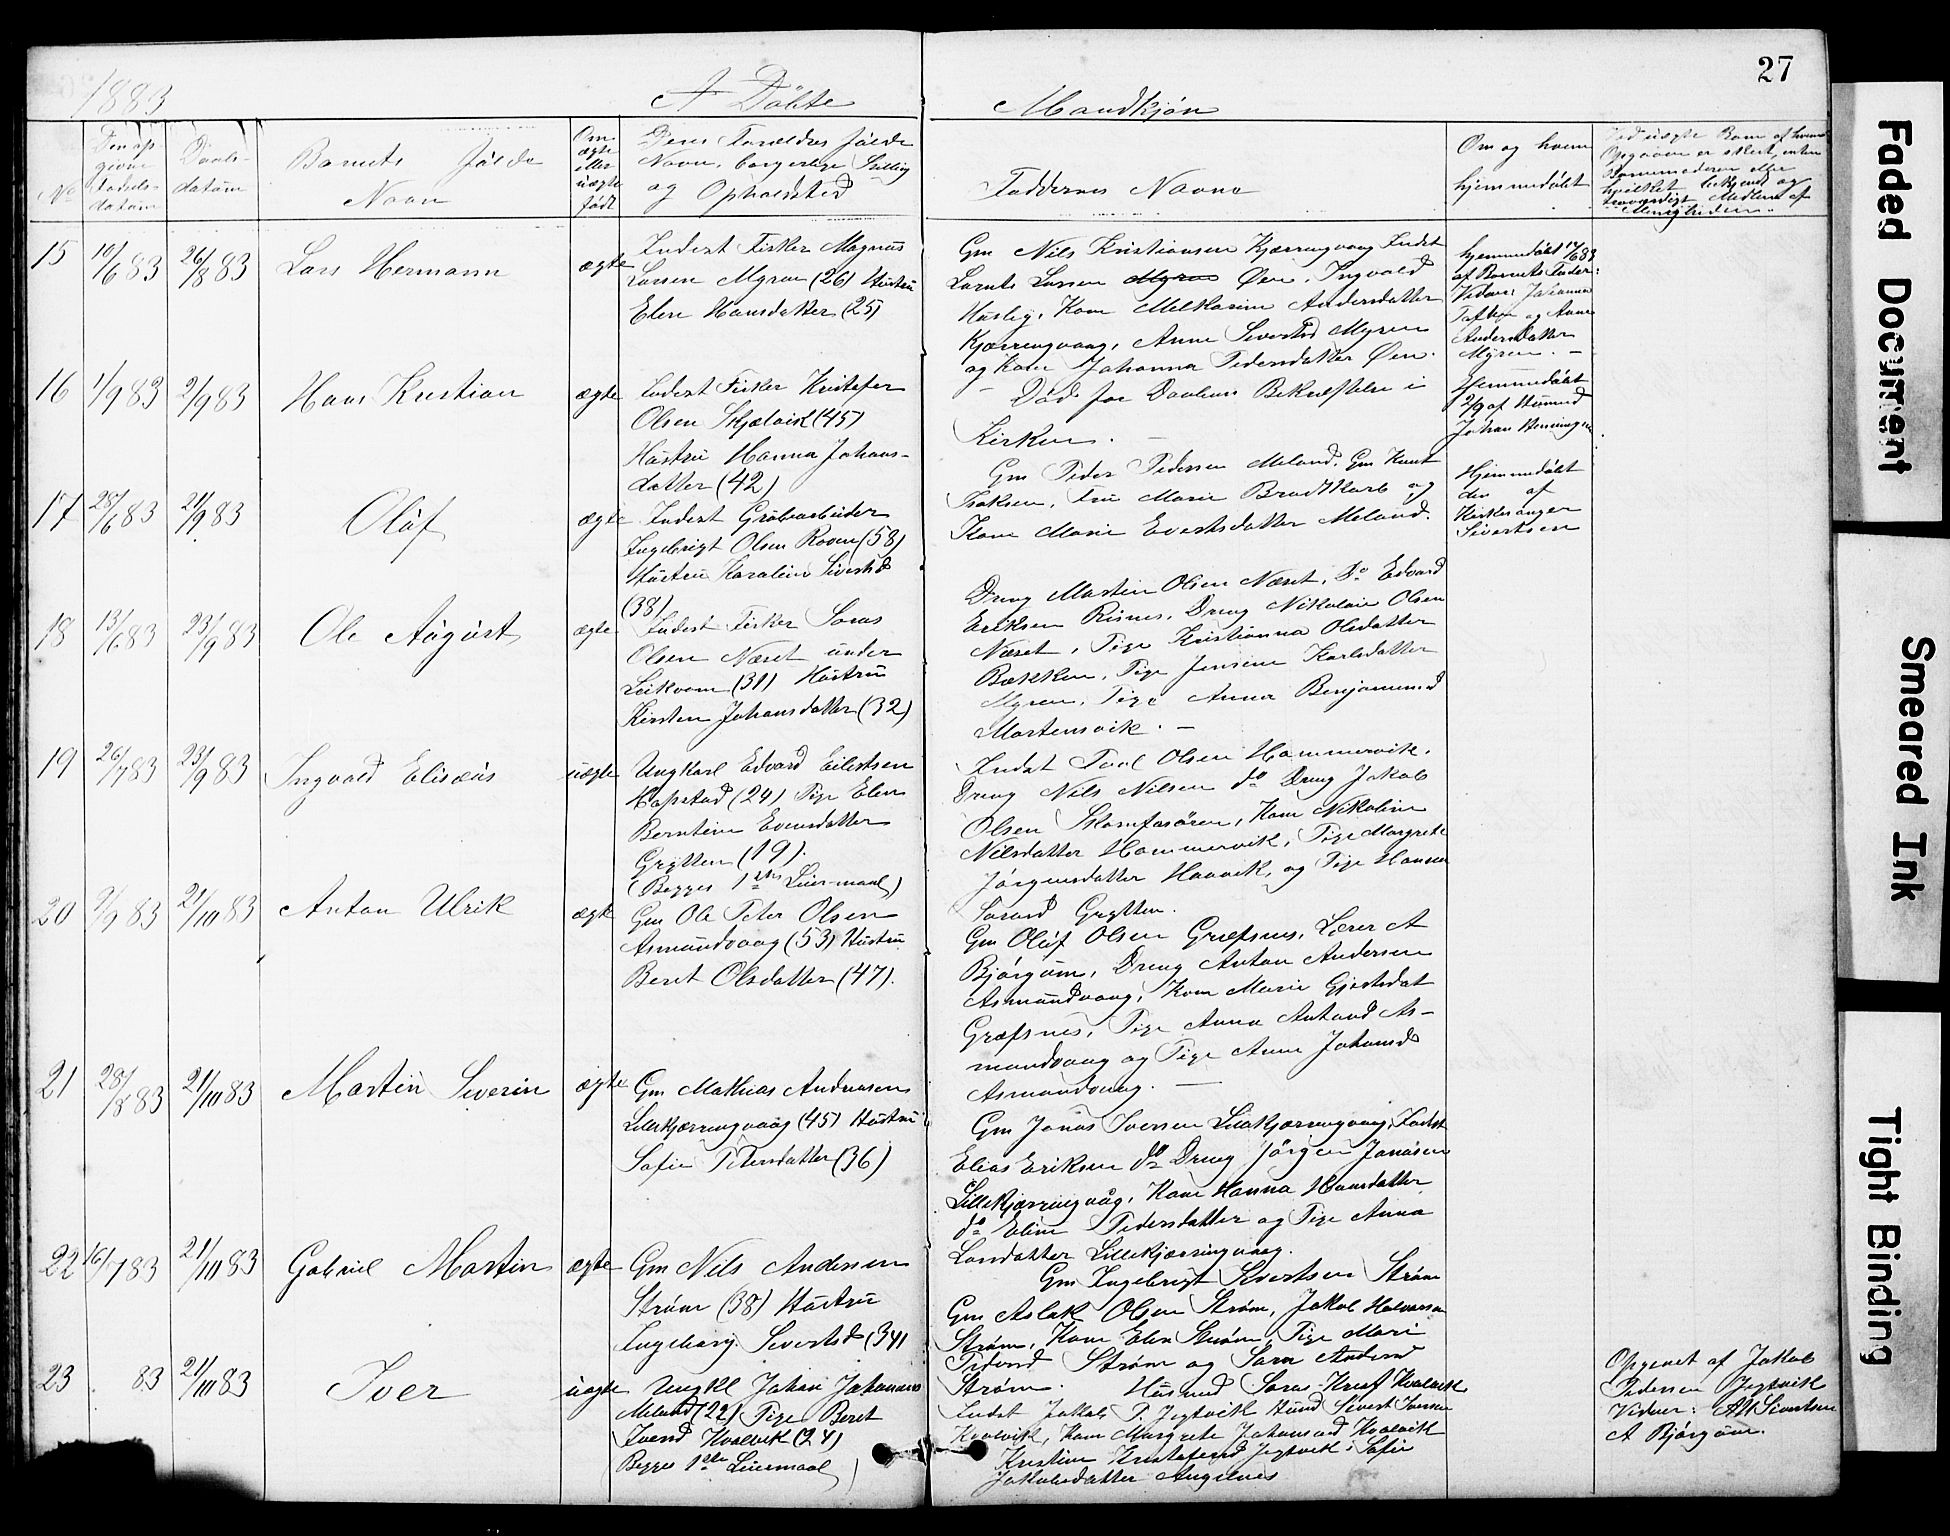 27
1883
A Döbte
Mandkjön
No
Den op-
givne
födsels-
datum
Daabs-
datum
Barnets fulde
Navn
Om
ægte
eller
uægte
født
Deres Forældres fulde
Navn, borgerlige Stilling
og Opholdsted
Faddernes Navne
Om og hvem
hjemmedöbt
15 10/6 83 26/8 83 Lars Hermann ægte
Inderst Fisker Magnus
Larsen Myran (26) Hustru
Elen Hansdatter (25)
Gm Nils Kristiansen Kjærringvaag Inderst
Larsen Myran Øen, Ingvald
Husby, Kone Andersdatter
Kjærringvaag, Anne Sivertsd Myren
og Kone Johanna Pedersdatter Øen.
hjemmedöbt
af Barnets Fader:
Vidner Johanna
og Anne
Andersdatter
Myren. —
16 1/9 83 2/9 83 Hans Kristian ægte
Inderst Fisker Kristofer
Olsen Skjelvik (45)
Hustru Hanna Johans-
datter (42)
— Död før Daabens Bekræftelse i
Kirken. —
Hjemmedöbt
2/9 af Husmd
Johan Henningsen
17 28/6 83 2/9 83 Oluf ægte
Inderst Grubearbeider
Ingebrigt Olsen Roven (58)
Hustru Karoline Sivertsd
(38)
Gm Peder Pedersen Meland, Gm Knut
Isaksen, Fru Marie Brodtkorb og
Kone Marie Evertsdatter Meland.
Hjemmedöbt
den af
Kirkesanger
Sivertsen
18 13/6 83 23/9 83 Ole August ægte
Inderst Fisker Jonas
Olsen Næset under
Leikvam (31) Hustru
Kirsten Johansdatter (32)
Dreng Martin Olsen Næset, Do Edvard
Eriksen Risnes, Dreng Nikolai Olsen
Næset, Pige Kristianna Olsdatter
Bakken, Pige Jensine Karlsdatter
Myren, Pige Anna Benjaminsd
Mortensvik. —
19 26/7 83 23/9 83 Ingvald Elisæus uægte
Ungkarl Edvard Eilertsen
Hopstad (24) Pige Elen
Berntine Evensdatter
Grytten (19).
(Begges 1ste Leiermaal)
Inderst Olsen Hammervik,
Dreng Nils Nilsen do Dreng Jakob
Olsen Kone Nikoline
Nilsdatter Hammervik, Pige Margrete
Jörgensdatter Haavik, og Pige Hanna
Grytten.
20 7/9 83 21/10 83 Anton Ulrik ægte
Gm Ole Peter Olsen
Asmundvaag (53) Hustru
Beret Olsdatter (47).
Gm Oluf Olsen Græfsnes, Lærer A
Bjørgum, Dreng Anton Andersen
Asmundvaag, Kone Marie Gjertsdat
Græfsnes, Pige Anna Antonsd As-
mundvaag og Pige Anne Johansd
Asmundvaag. —
21 28/8 83 21/10 83 Martin Severin ægte
Gm Mathias Andreasen
Lillekjærringvaag (45) Hustru
Sofie Petersdatter (36)
Gm Jonas Iversen Lillekjærringvaag, Inderst
Elias Eriksen do Dreng Jörgen Jonasen
Lillekjærringvaag, Kone Hanna Hansdatter
do Eline Pedersdatter og Pige Anna
Larsdatter Lillekjærringvaag.
22 16/7 83 21/10 83 Gabriel Martin ægte
Gm Nils Andersen
Strøm (38) Hustru
Ingeborg Sivertsd (34)
Gm Ingebrigt Sivertsen Strøm
Gm Aslak Olsen Strøm, Jakob Halvorsen
Strøm, Kone Elen Strøm, Pige Mari
Pedersd Strøm og Sara Andersd
Strøm.
23 83 21/10 83 Iver uægte
Ungkl Johan Johansen
Meland (22) Pige Beret
Iversd Kvalvik (24)
Begges 1ste Leiermaal
Husmd Jonas Kvalvik
Inderst Jakob P. Jegtvik Husmd Sivert Iversen
Kvalvik, Kone Margrete Johansd Kvalvik
Kristine Kristofersd Jegtvik, Sofie
Jakobsdatter
Opgivet af Jakob
Pedersen Jegtvik
Vidner: AM Sivertsen
A Bjørgum.
Faded Document
Smeared Ink
Tight Binding